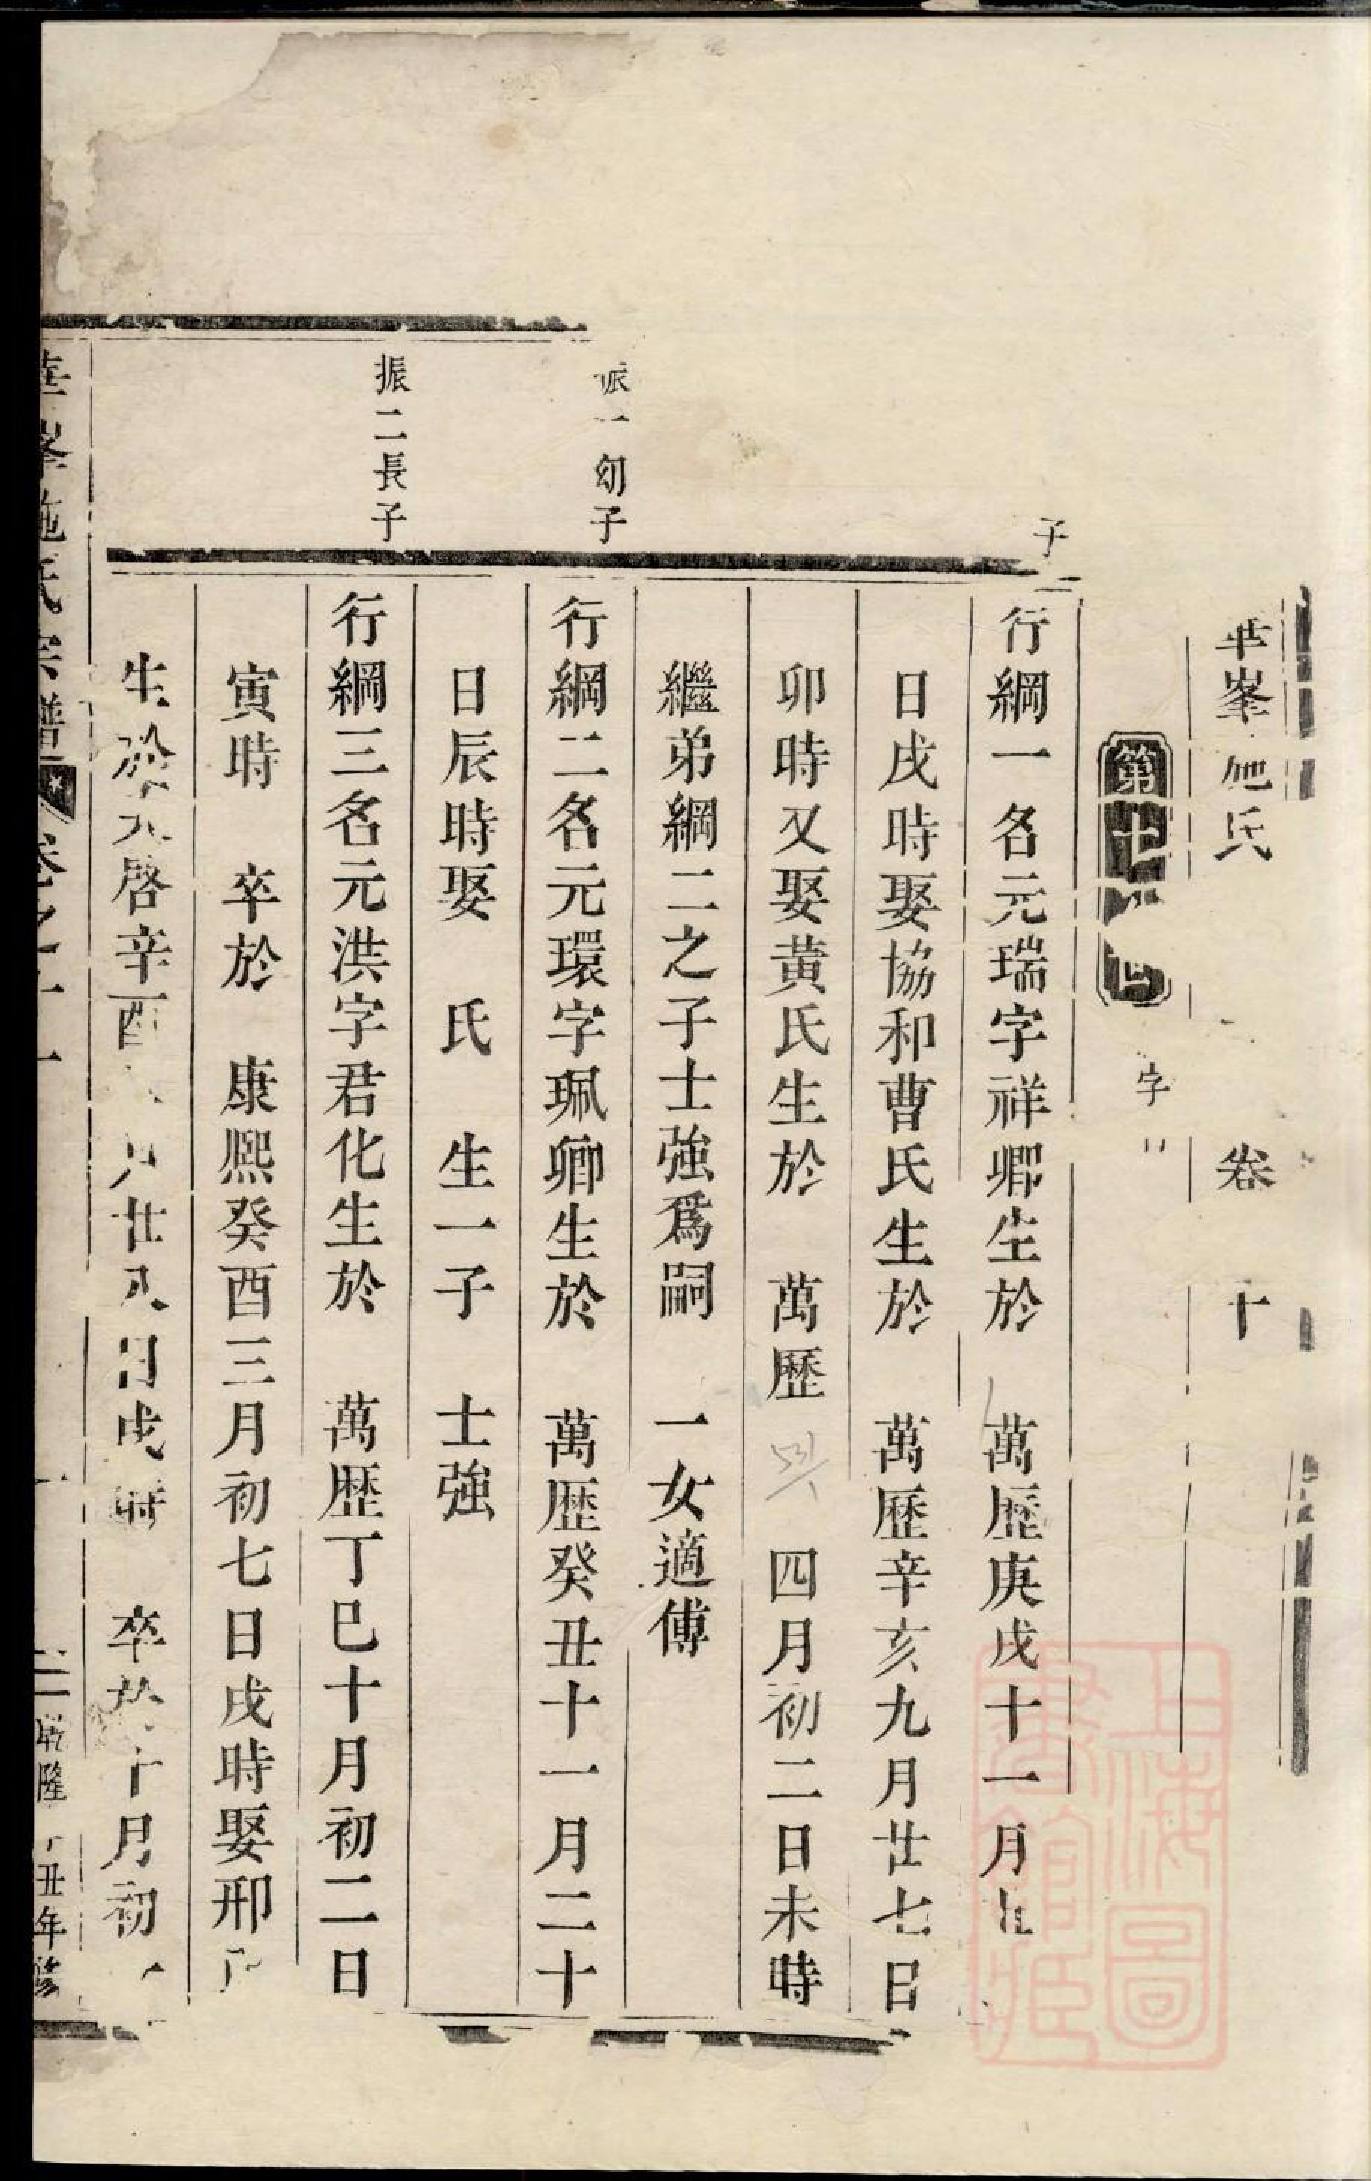 華峯施氏 卷十
第十 字
子
行綱一名元瑞字祥卿生於 萬歷庚戌十一月
日戌時娶協和曹氏生於 萬歷辛亥九月廿七日
卯時又娶黃氏生於 萬歷 四月初二日未時
繼弟綱二之子士強爲嗣 一女適傅
振一幼子
行綱二名元環字珮卿生於 萬歷癸丑十一月二十
日辰時娶 氏 生一子 士強
振二長子
行綱三名元洪字君化生於 萬歷丁巳十月初二日
寅時 卒於 康熙癸酉三月初七日戌時娶邢
生於天啓辛酉 月廿八日戌時 卒於 十月初
華峯施氏宗譜 卷之十一 二 乾隆丁丑年修
上海圖書館藏